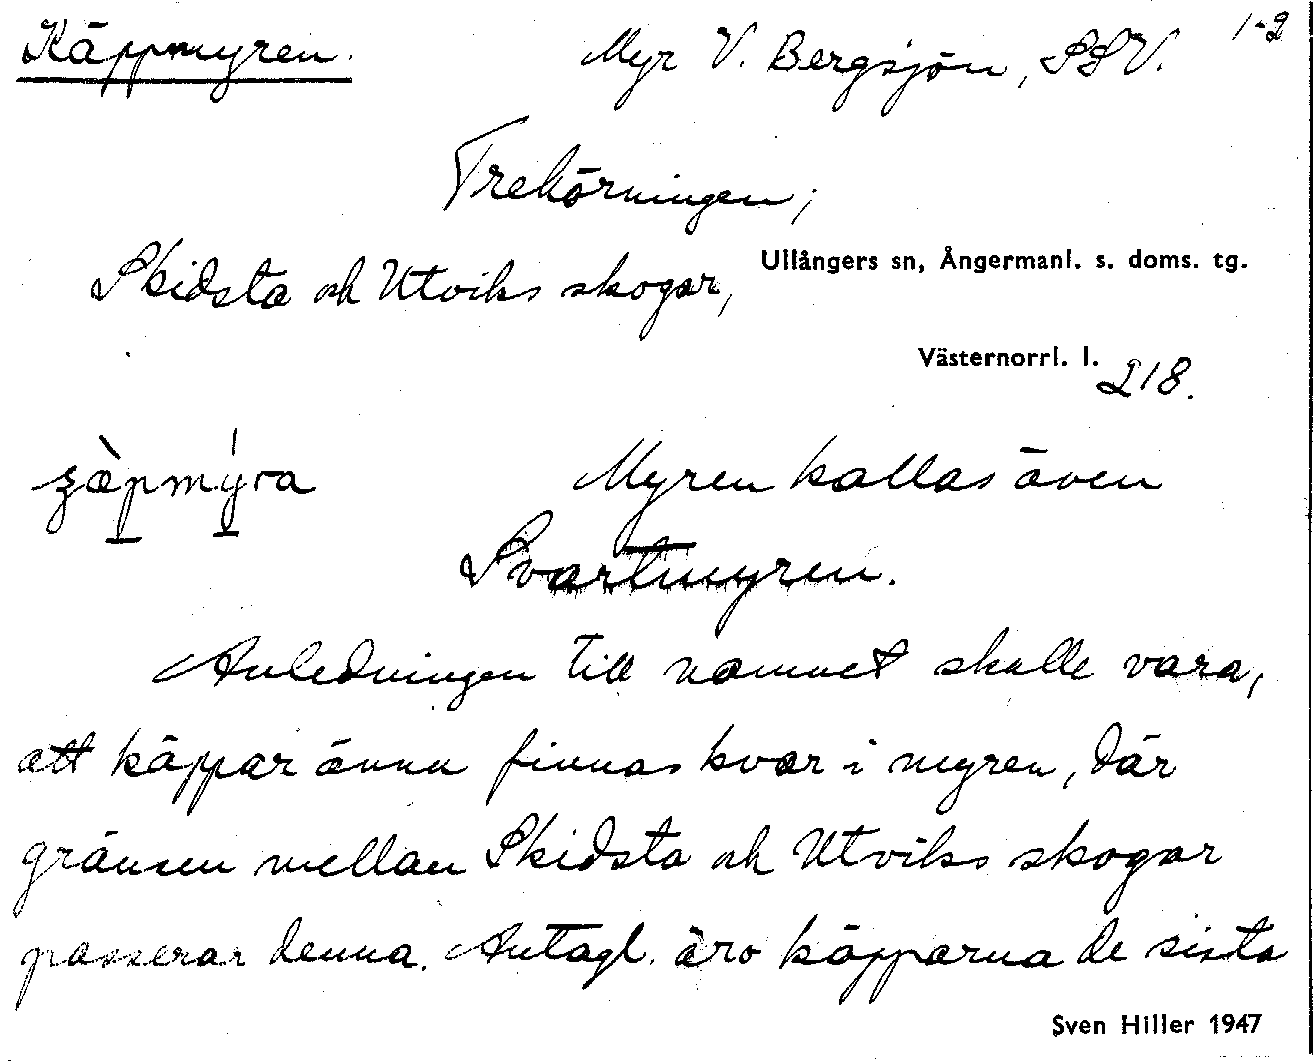 Käppmyren. Myr V. Bergsjön, SSV. 1-2
Trehörningen,
Skidsta och Utviks skogar, Ullångers sn, Ångermanl. s. doms. tg.
Västernorrl. l. 218.
Myren kallas även
Svartmyren.
Anledningen till namnet skulle vara,
att käppar ännu finnas kvar i myren, där
gränsen mellan Skidsta och Utviks skogar
passerar denna. Antagl. äro käpparna de sista
Sven Hiller 1947